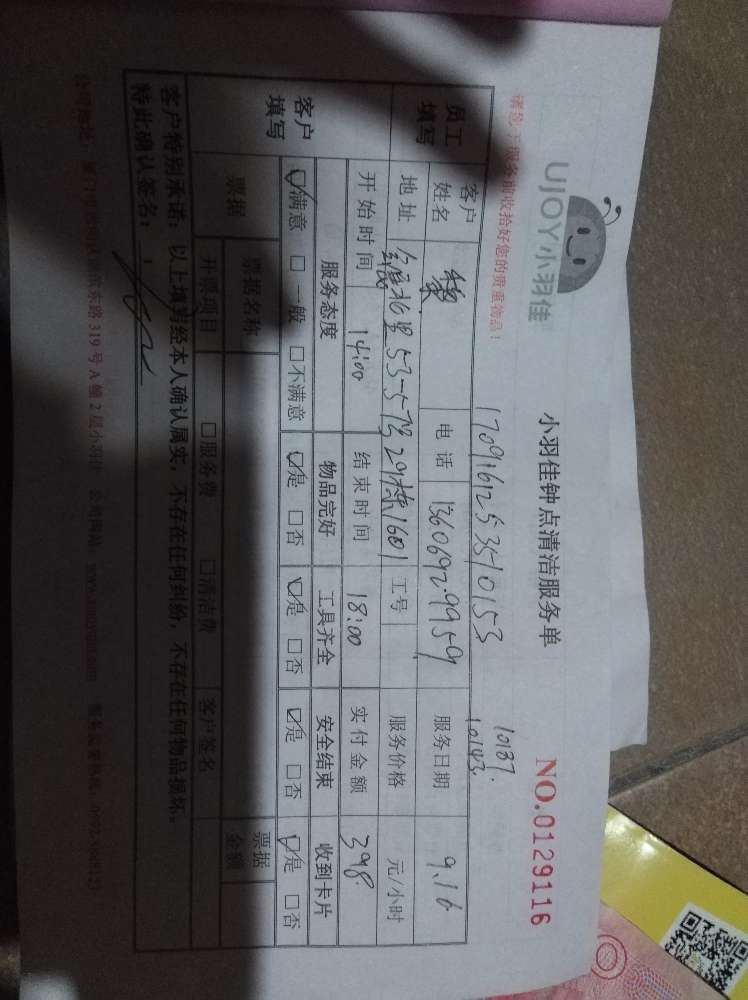 UJOY小羽佳
小羽佳钟点清洁服务单
NO.0129116
请您于服务前收拾好您的贵重物品!
1709161253510153
10187.
10143.
员工填写
客户姓名
电话 13606929959
服务日期 9.16
地址
53-57号29栋1601
工号
服务价格 元/小时
开始时间 14:00
结束时间 18:00
实付金额 398.
客户填写
服务态度 物品完好 工具齐全 安全结束 收到卡片
☑满意 □一般 □不满意 ☑是 □否 ☑是 □否 ☑是 □否 ☑是 □否
票据
票据名称
票据金额
开票项目 □服务费 □清洁费 客户签名
客户特别承诺:以上填写经本人确认属实,不存在任何纠纷,不存在任何物品损坏。
特此确认签名:
东路319号A幢2层小羽佳